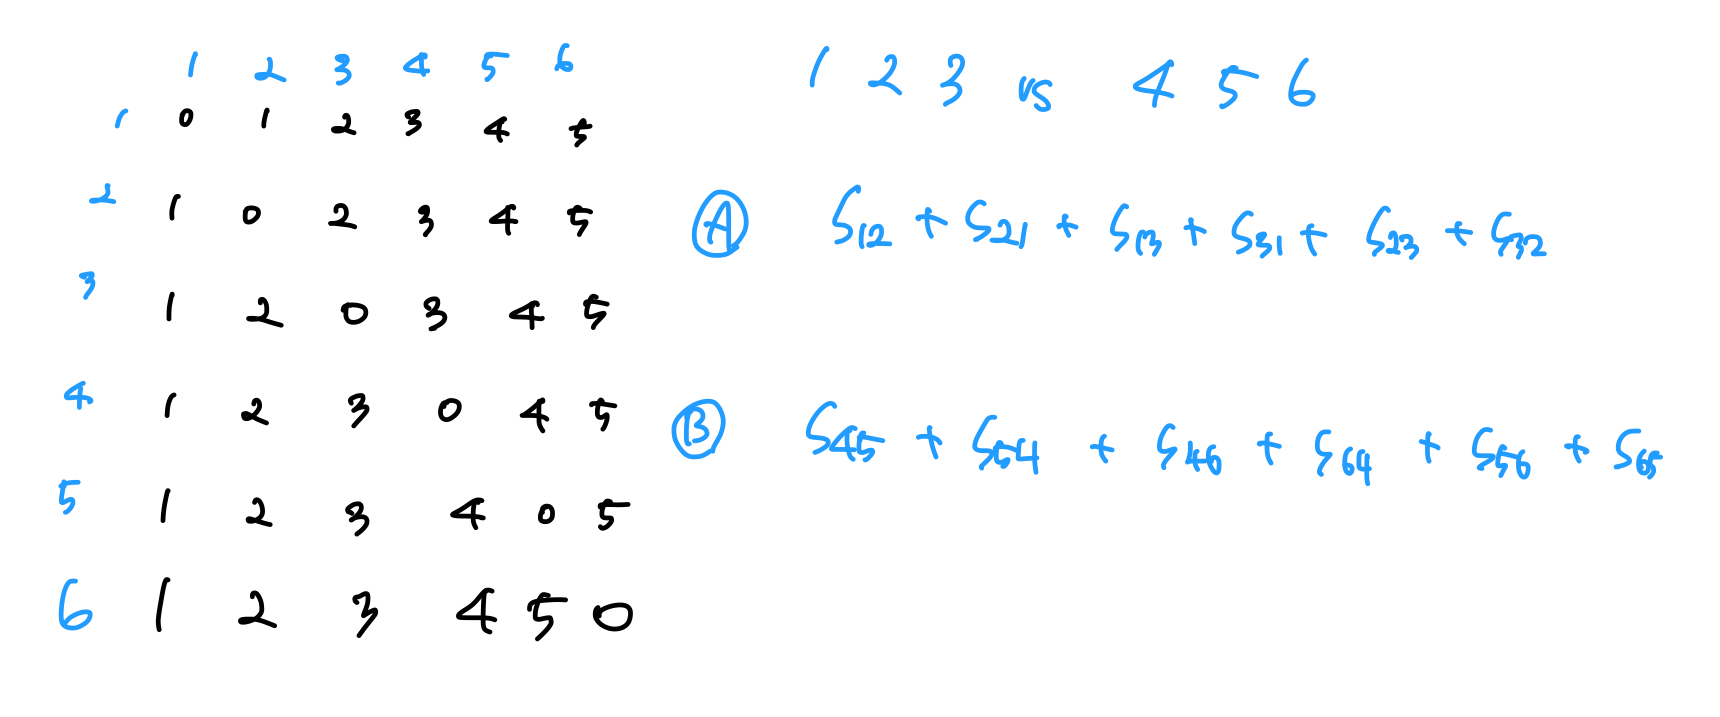 1 2 3 4 5 6
1 0 1 2 3 4 5
2 1 0 2 3 4 5
3 1 2 0 3 4 5
4 1 2 3 0 4 5
5 1 2 3 4 0 5
6 1 2 3 4 5 0
1 2 3 vs 4 5 6
Ⓐ S₁₂ + S₂₁ + S₁₃ + S₃₁ + S₂₃ + S₃₂
Ⓑ S₄₅ + S₅₄ + S₄₆ + S₆₄ + S₅₆ + S₆₅